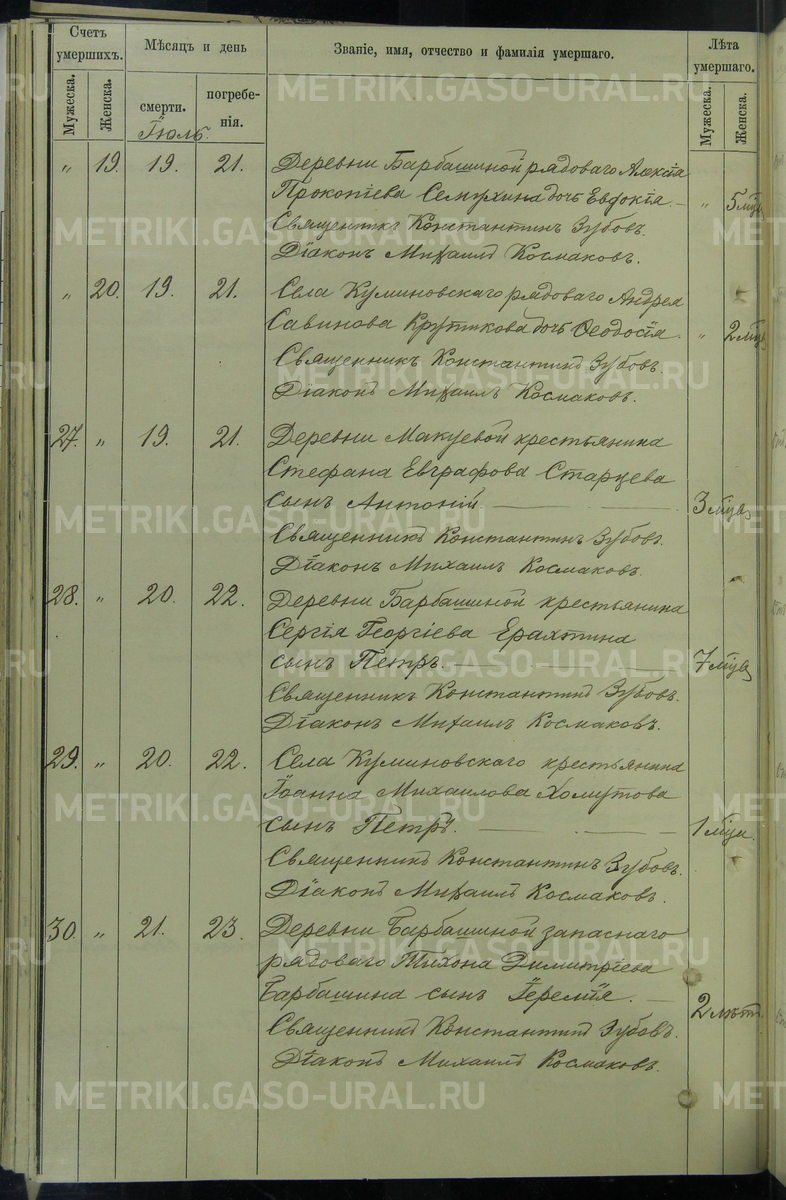 Счетъ умершихъ. Мѣсяцъ и день Званіе, имя, отчество и фамилія умершаго. Лѣта умершаго.
Мужеска. Женска. смерти. погребенія. Мужеска. Женска.
Іюль.
" 19. 19. 21. Деревни Барбашиной рядоваго Алексія
Прокопіева Семухина дочь Евдокія — " 5 мѣц
Священникъ Константинъ Зубовъ.
Діаконъ Михаилъ Космаковъ.
" 20. 19. 21. Села Куминовскаго рядоваго Андрея
Савинова Крутикова дочь Ѳеодосія. " 2 мѣц
Священникъ Константинъ Зубовъ.
Діаконъ Михаилъ Космаковъ.
27. " 19. 21. Деревни Макуевой крестьянина
Стефана Евграфова Старцева
сынъ Антоній. — 3 мѣця
Священникъ Константинъ Зубовъ.
Діаконъ Михаилъ Космаковъ.
28. " 20. 22. Деревни Барбашиной крестьянина
Сергія Георгіева
сынъ Петръ. — 7 мѣця
Священникъ Константинъ Зубовъ.
Діаконъ Михаилъ Космаковъ.
29. " 20. 22. Села Куминовскаго крестьянина
Іоанна Михаилова Хомутова
сынъ Петръ. — 1 мѣць.
Священникъ Константинъ Зубовъ.
Діаконъ Михаилъ Космаковъ.
30. " 21. 23. Деревни Барбашиной запаснаго
рядоваго Тихона Димитріева
Барбашина сынъ Іеремія. — 2 лѣтъ.
Священникъ Константинъ Зубовъ.
Діаконъ Михаилъ Космаковъ.
METRIKI.GASO-URAL.RU